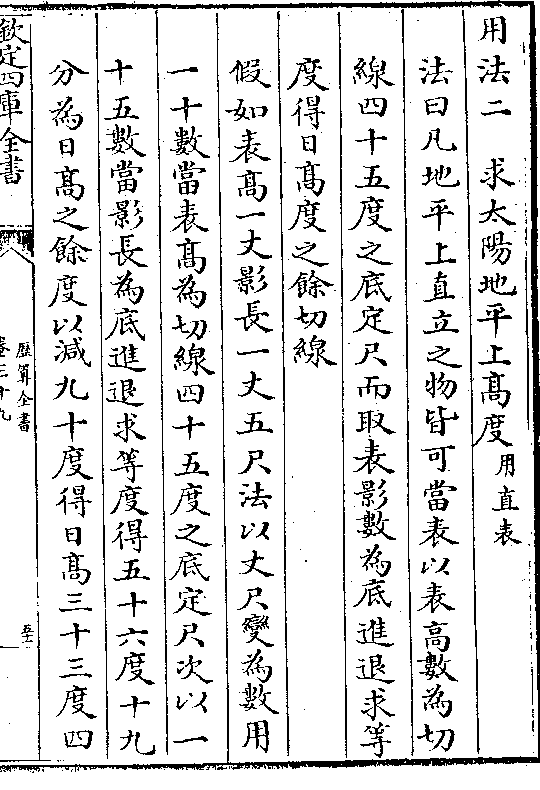 用法二　求太陽地平上髙度用直表
法曰凡地平上直立之物皆可當表以表高數為切
線四十五度之底定尺而取表影數為底進退求等
度得日髙度之餘切線
假如表髙一丈影長一丈五尺法以丈尺變為數用
一十數當表髙為切線四十五度之底定尺次以一
十五數當影長為底進退求等度得五十六度十九
分為日髙之餘度以減九十度得日髙三十三度四
欽定四庫全書
歷算全書
卷三十九